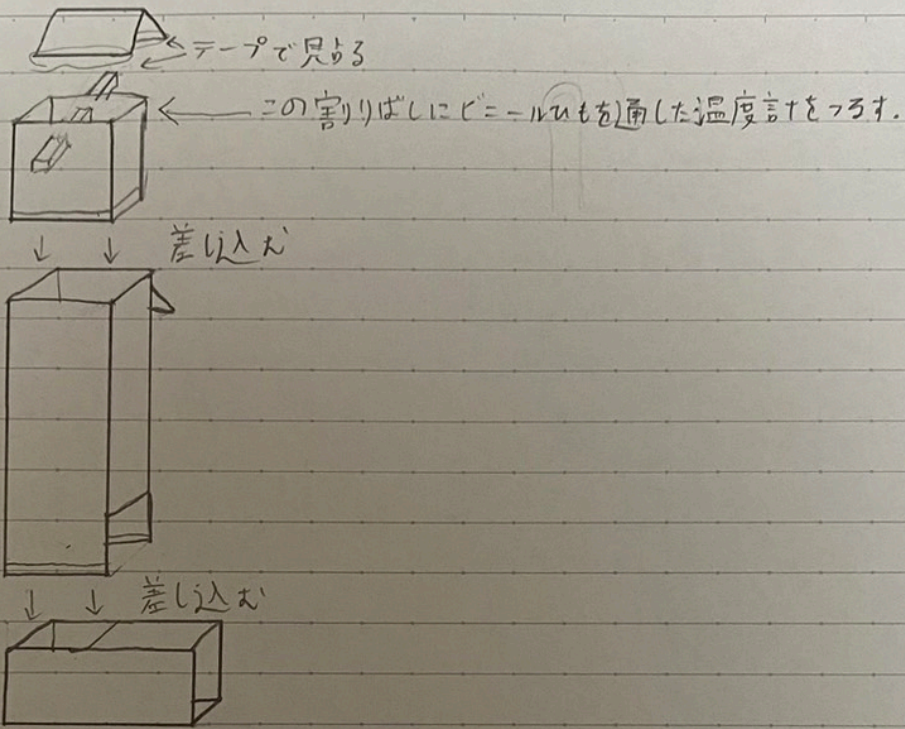 テープで見占る
この割りばしにビニールひもを通した温度計をつるす.
差し込む
差し込む